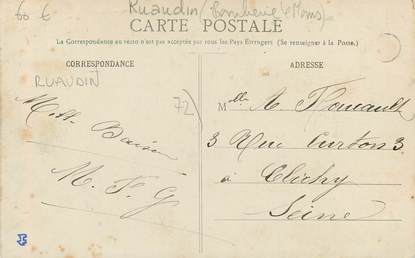 60 € Ruaudin /
CARTE POSTALE
La Correspondance au recto n'est pas acceptée par tous les Pays Étrangers (Se renseigner à la Poste.)
CORRESPONDANCE
ADRESSE
RUAUDIN
72
Mille Baisers
M. F. G
Melle A. Foucault
3 Rue Curton 3
à Clichy
Seine